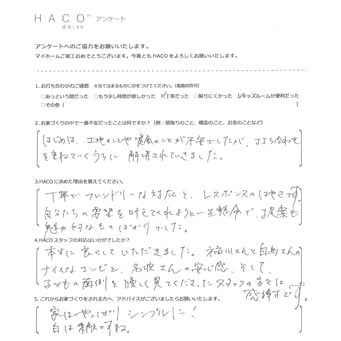 HACO アンケート
アンケートへのご協力をお願いいたします。
マイホームご竣工おめでとうございます。今後とも HACO をよろしくお願いいたします。
1. お打ち合わせのご感想 ※当てはまるものに印をつけてください。(複数回答可)
□あっという間だった □もう少し時間が欲しかった ☑丁寧だった □解りにくかった ☑キッズルームが便利だった
□その他 ( )
2. お家づくりの中で一番不安だったことは何ですか?
はじめは、土地のことや資金のことが不安でしたが、打ち合わせ
を重ねていくうちに 解消されていきました。
3.HACO に決めた理由を教えてください。
丁寧でフレンドリーな対応と、レスポンスのはやさです。
自分たちの要望を叶えてくれようと一生懸命で、提案も
魅力的なものばかりでした。
4.HACO スタッフの対応はいかがでしたか?
本当に良くしていただきました。 稲川さんと白鳥さんの
ナイスなコンビと、 さんの安心感、そして、
子どもの面倒を優しく見てくださったスタッフの方々に
感謝です。
5. これからお家づくりをされる方へ、アドバイスがございましたらお願いいたします。
家はやっぱり シンプルに!
白は素敵ですね。